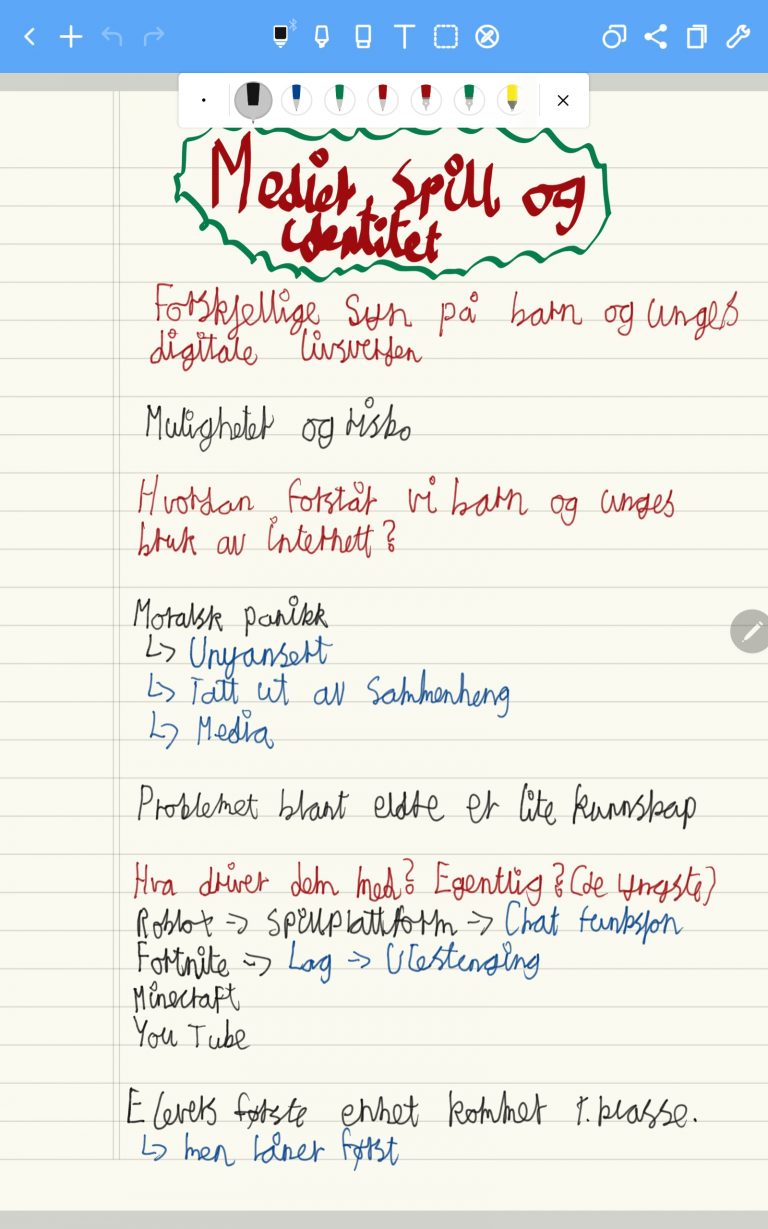 Medier, spill og
identitet
Forskjellige syn på barn og unges
digitale livsverden
Muligheter og risko
Hvordan forstår vi barn og unges
bruk av internett?
Moralsk panikk
↳ Unyansert
↳ Tatt ut av sammenheng
↳ Media
Problemet blant eldre er lite kunnskap
Hva driver dem med? Egentlig? (de yngste)
Roblox → Spillplattform → Chat funksjon
Fortnite → Lag → Utestenging
Minecraft
YouTube
Elevers første enhet kommer 1. klasse.
↳ men låner først